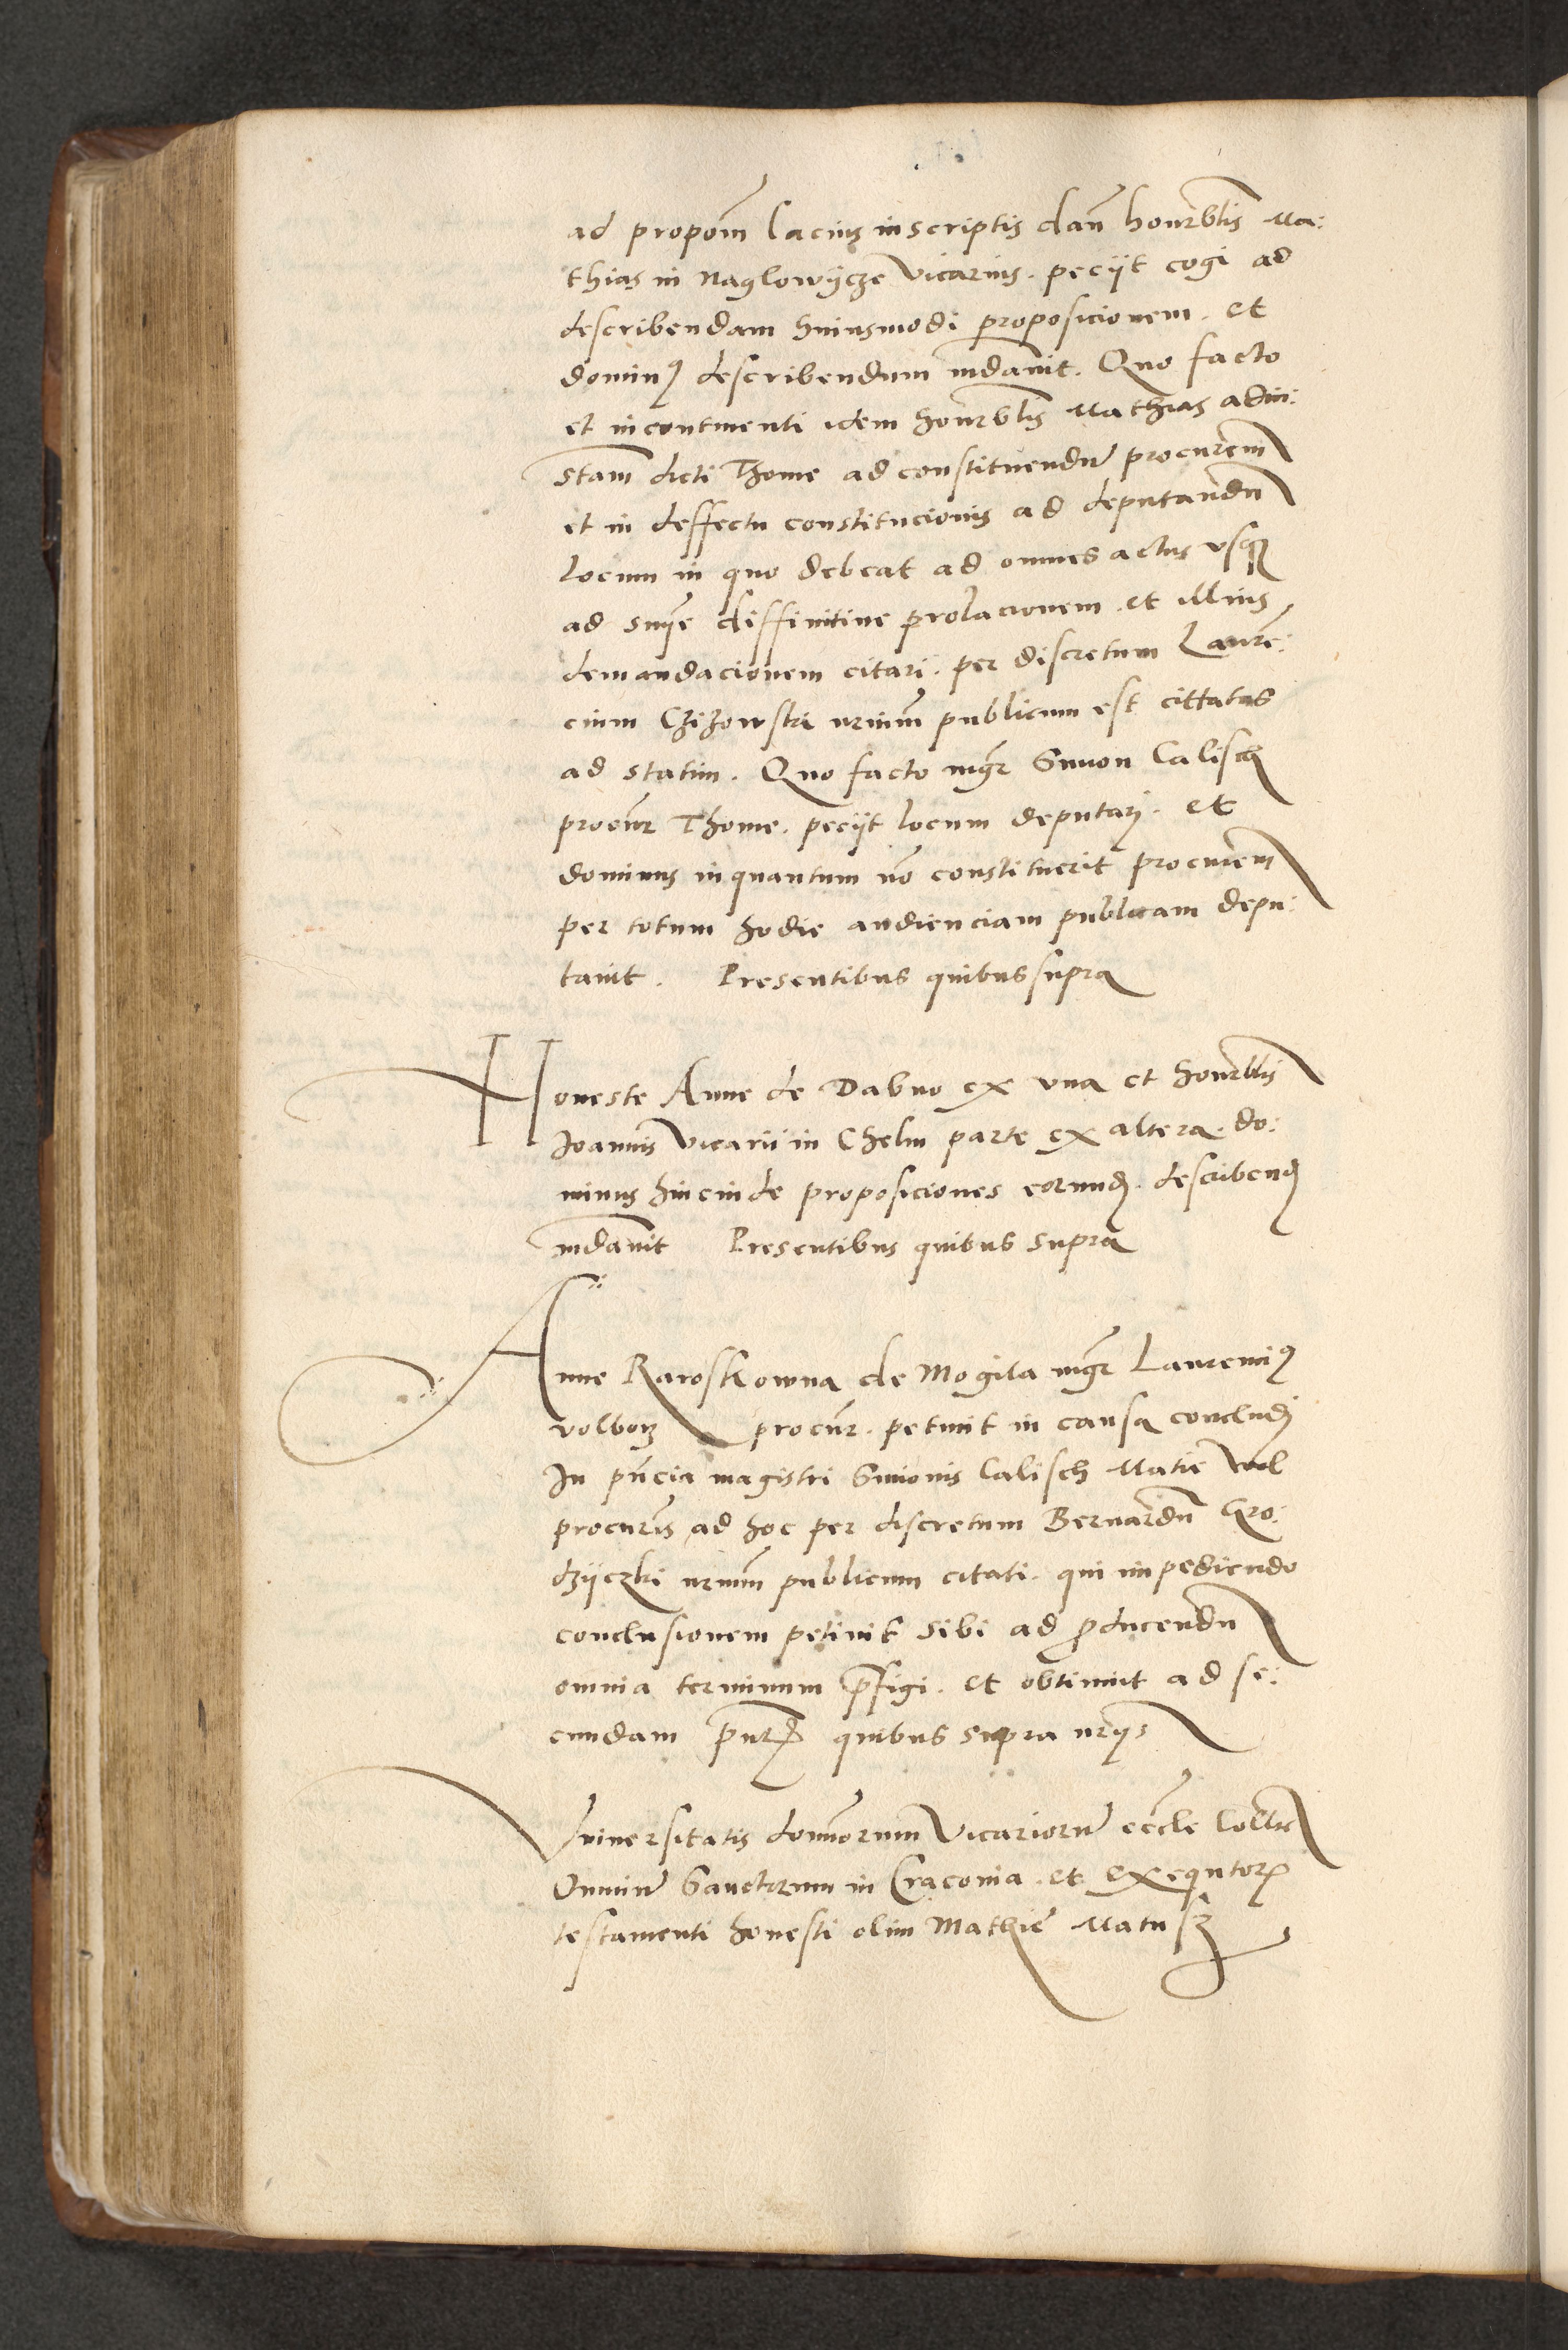 ad propom̄ lacius in scriptis dan̄ honrab̄lis Ma:
thias in Naglowÿcze vicarius. peciit cogi ad
describendam huiusmodi proposicionem. et
dominꝰ describendum mdauit. Quo facto
et incontinenti idem honorab̄lis Mathias ad in:
stam dicti Thome ad constituendū procurem
et in deffectu constitucionis ad deputandū
locum in quo debeat ad omnes actus vsqꝫ
ad snīe diffinitiue prolacionem. et illius
demandacionem citari. per discretum Laurē:
cium Czizowski nrium publicum est cittatus
ad statim. Quo facto mgr̄ Simon Calisch
procur̄ Thome. peciit locum deputari. et
dominus in quantum nō constituerit procurem
per totum hodie audienciam publicam depu:
tauit. Presentibus quibus supra
Honeste Anne de Dabno ex vna et honrab̄lis
Joannis vicarii in Chelm parte ex altera. do:
minus hincinde proposiciones eorund. describend
mdauit Presentibus quibus supra
Anne Raroskowna de Mogila mgr̄ Laurenciꝰ
volborz procur̄. petiuit in causa concludj
In pn̄cia magistri Simonis Calisch Matie Wol
procuris ad hoc per discretum Bernardū Gro:
dzÿczki nrium publicum citati. qui impediendo
conclusionem petiuit sibi ad ꝓducendū
omnia terminum p̄figi. et obtinuit ad se:
cundam pn̄t quibus supra nriis
Vniuersitatis dominorum vicariorū eccle Collte
Omniū Sanctorum in Cracouia. et exequtorꝫ
testamenti honesti olim Mathie Matusz